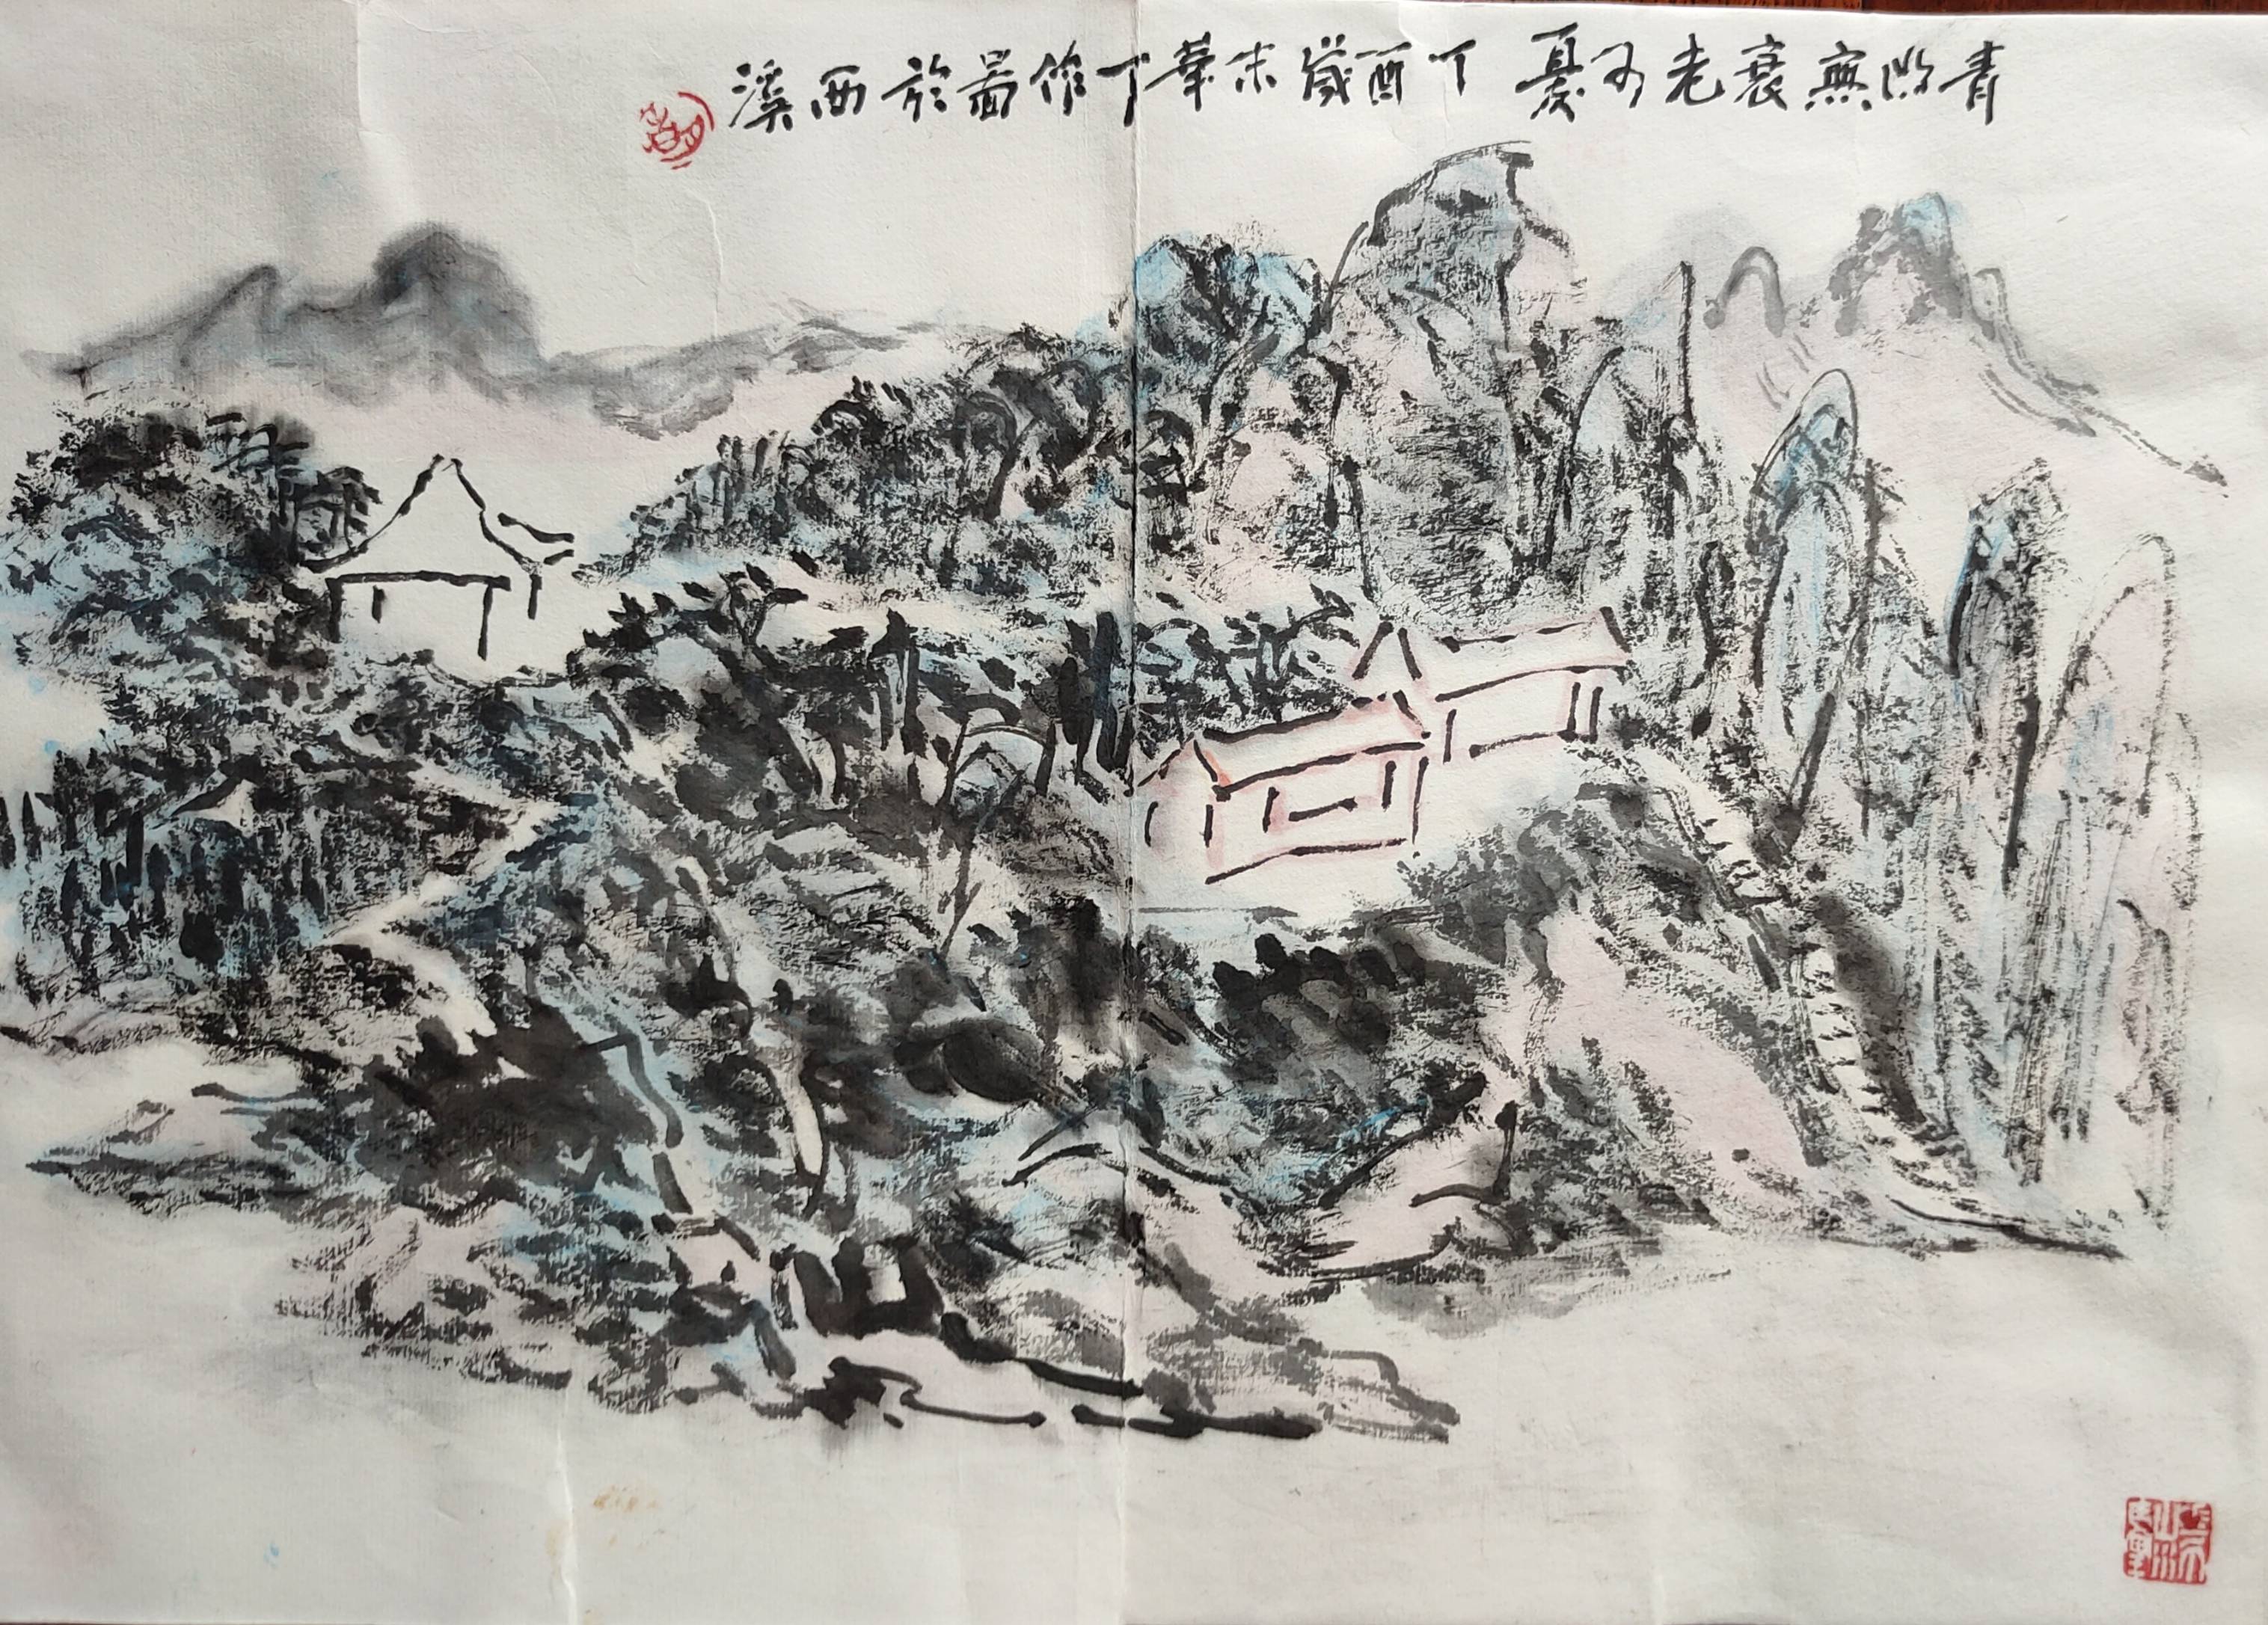 青山無衰老可憂 丁酉歲末華丁作畵於西溪